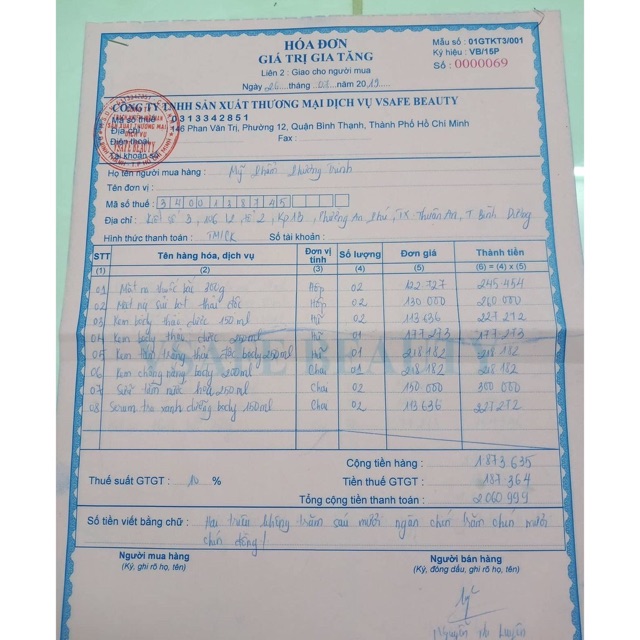 HÓA ĐƠN
GIÁ TRỊ GIA TĂNG
Liên 2 : Giao cho người mua
Ngày 26 tháng 07 năm 2019
Mẫu số : 01GTKT3/001
Ký hiệu : VB/15P
Số : 0000069
CÔNG TY TNHH SẢN XUẤT THƯƠNG MẠI DỊCH VỤ VSAFE BEAUTY
Mã số thuế : 0313342851
Địa chỉ : 146 Phan Văn Trị, Phường 12, Quận Bình Thạnh, Thành Phố Hồ Chí Minh
Điện thoại Fax :
Tài khoản số
VSAFE BEAUTY
Họ tên người mua hàng : Mỹ Phẩm Phương Trinh
Tên đơn vị :
Mã số thuế : 3400188745
Địa chỉ : 3, 106 L2, tổ 2, Kp 1B, Phường An Phú, TX Thuận An, T Bình Dương
Hình thức thanh toán : TM/CK Số tài khoản :
STT Tên hàng hóa, dịch vụ Đơn vị tính Số lượng Đơn giá Thành tiền
(1) (2) (3) (4) (5) (6) = (4) x (5)
01 Mặt nạ thuốc bắc 200g Hộp 02 122 727 245 454
02 Mặt nạ sủi bọt thải độc Hộp 02 130 000 260 000
03 Kem body thảo dược 150ml Hũ 02 113 636 227 272
04 Kem body thảo dược 250ml Hũ 01 177 273 177 273
05 Kem tắm trắng thảo dược body 250ml Hũ 01 218 182 218 182
06 Kem chống nắng body 200ml Chai 01 218 182 218 182
07 Sữa tắm nước hoa 250ml Chai 02 150 000 300 000
08 Serum trà xanh dưỡng body 150ml Chai 02 113 636 227 272
SAFE BEAUTY
Cộng tiền hàng : 1 873 635
Thuế suất GTGT : 10 % Tiền thuế GTGT : 187 364
Tổng cộng tiền thanh toán : 2 060 999
Số tiền viết bằng chữ : Hai triệu không trăm sáu mươi ngàn chín trăm chín mươi
chín đồng!
Người mua hàng Người bán hàng
(Ký, ghi rõ họ, tên) (Ký, đóng dấu, ghi rõ họ, tên)
Nguyễn